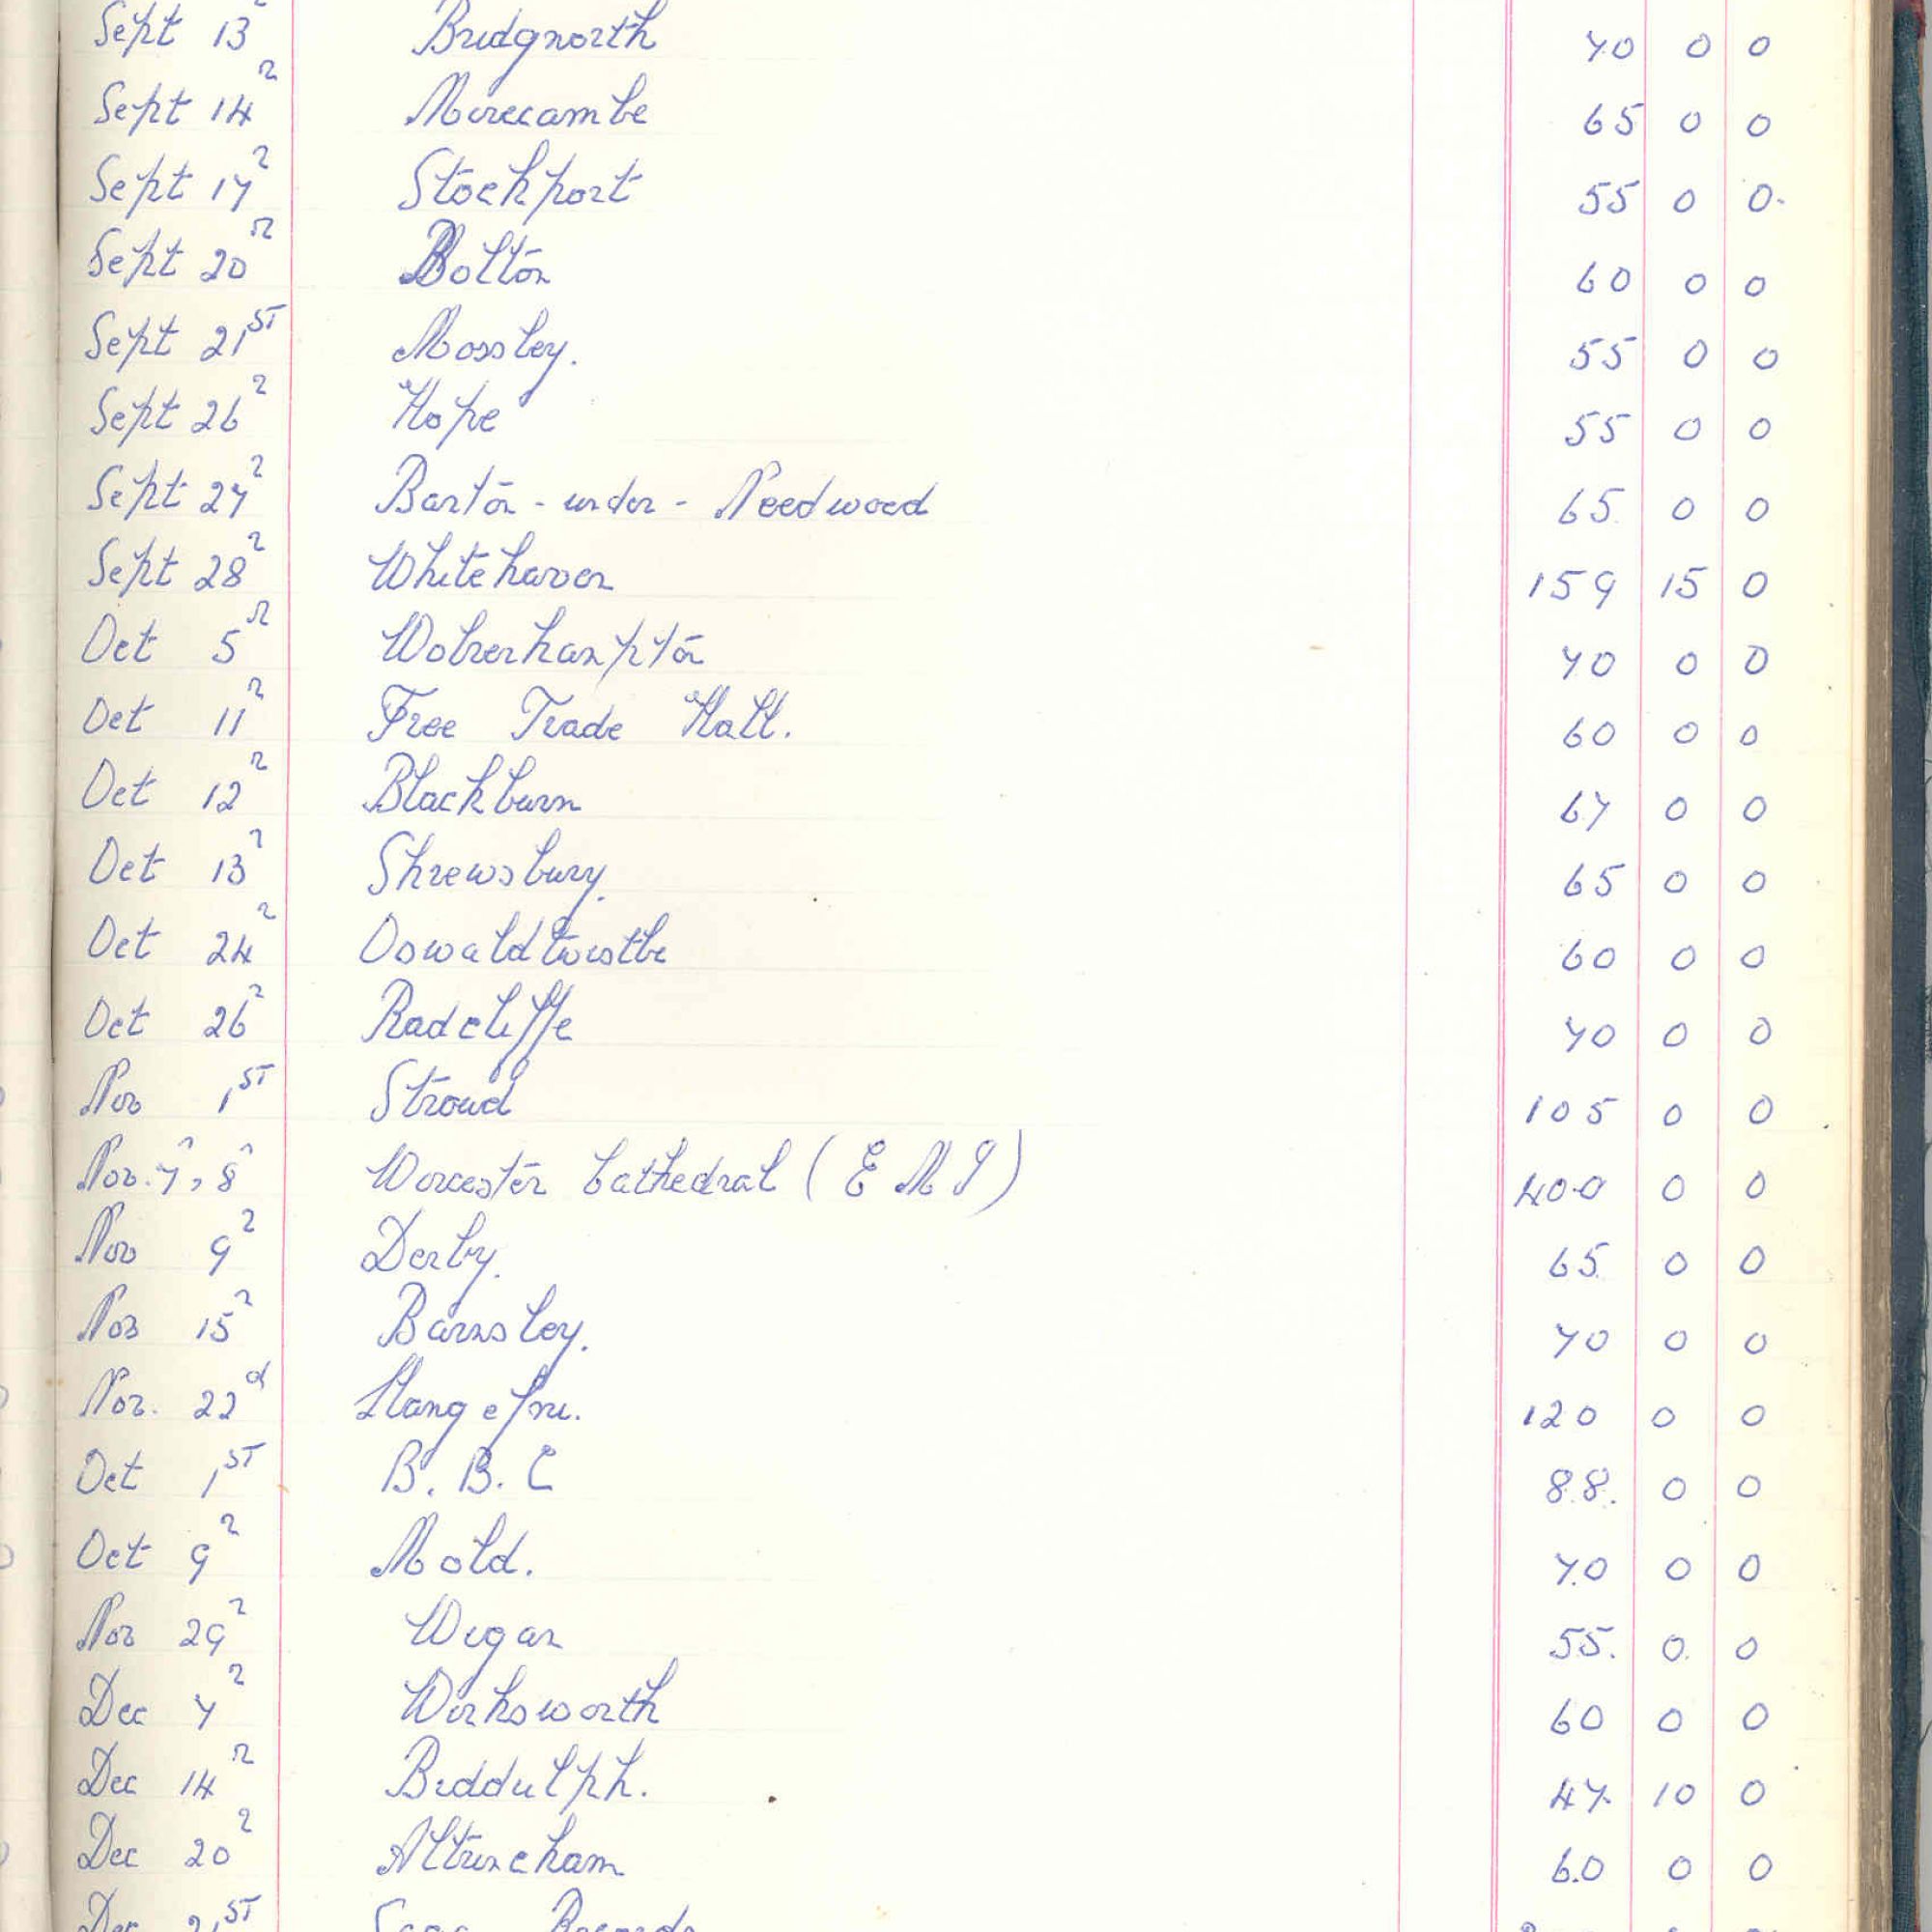 Sept 13 Bridgnorth 70 0 0
Sept 14 Morecambe 65 0 0
Sept 17 Stockport 55 0 0.
Sept 20 Bolton 60 0 0
Sept 21ST Mossley. 55 0 0
Sept 26 Hope 55 0 0
Sept 27 Barton - under - Needwood 65 0 0
Sept 28 Whitehaven 159 15 0
Oct 5 Wolverhampton 70 0 0
Oct 11 Free Trade Hall. 60 0 0
Oct 12 Blackburn 67 0 0
Oct 13 Shrewsbury. 65 0 0
Oct 24 Oswaldtwistle 60 0 0
Oct 26 Radcliffe 70 0 0
Nov 1ST Stroud 105 0 0
Nov. 7, 8 Worcester Cathedral (E M I) 400 0 0
Nov 9 Derby. 65 0 0
Nov 15 Barnsley. 70 0 0
Nov. 22d Llangefni. 120 0 0
Oct 1ST B. B. C 88. 0 0
Oct 9 Mold. 70 0 0
Nov 29 Wigan 55. 0. 0
Dec 7 Wirksworth 60 0 0
Dec 14 Biddulph. 47. 10 0
Dec 20 Altrincham 60 0 0
Dec 21ST Records